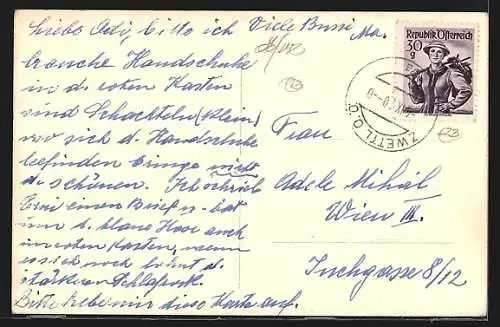 Liebe Adi, bitte ich
Viele Bussi
Ma.
brauche Handschuhe
in d. roten Kasten
sind Schachteln (klein)
wo sich d. Handschuhe
befinden bringe nicht
d. schönen. Ich schrieb
Erni einen Brief u. bat
um d. blaue Hose auch
im roten Kasten, wenn
es sich noch lohnt d.
stärkeren Schlafrock.
Bitte hebe mir diese Karte auf.
Republik Österreich
30
g
ZWETTL O.Ö.
23
23
Frau
Adele Mihál
Wien III.
Juchgasse 8/12